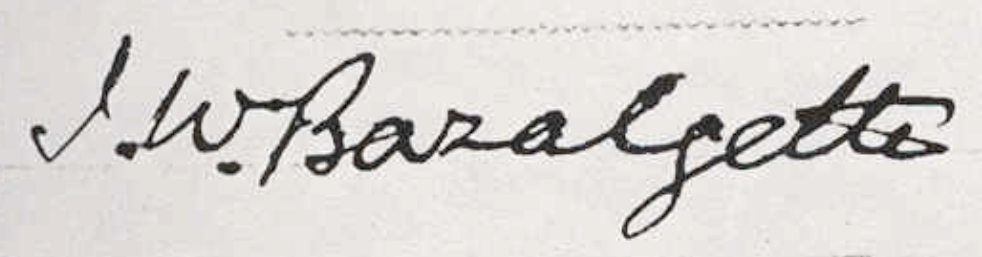 J.W. Bazalgette